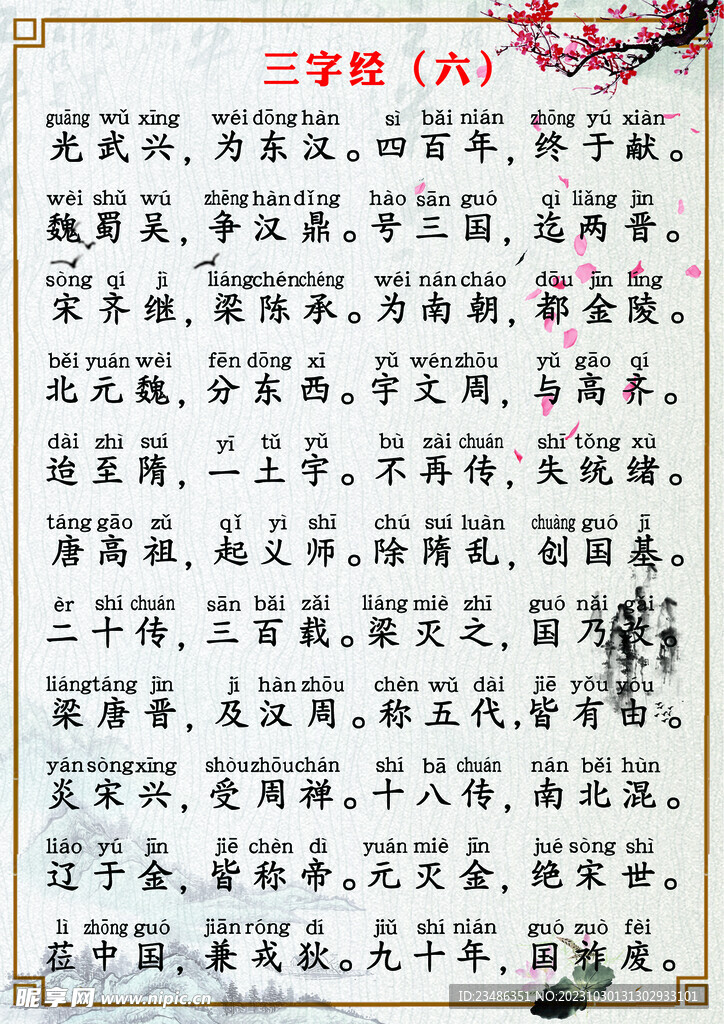 三字经（六）
guāng wǔ xīng wéi dōng hàn sì bǎi nián zhōng yú xiàn
光武兴，为东汉。四百年，终于献。
wèi shǔ wú zhēng hàn dǐng hào sān guó qì liǎng jìn
魏蜀吴，争汉鼎。号三国，迄两晋。
sòng qí jì liáng chén chéng wéi nán cháo dōu jīn líng
宋齐继，梁陈承。为南朝，都金陵。
běi yuán wèi fēn dōng xī yǔ wén zhōu yǔ gāo qí
北元魏，分东西。宇文周，与高齐。
dài zhì suí yī tǔ yǔ bù zài chuán shī tǒng xù
迨至隋，一土宇。不再传，失统绪。
táng gāo zǔ qǐ yì shī chú suí luàn chuàng guó jī
唐高祖，起义师。除隋乱，创国基。
èr shí chuán sān bǎi zǎi liáng miè zhī guó nǎi gǎi
二十传，三百载。梁灭之，国乃改。
liáng táng jìn jí hàn zhōu chèn wǔ dài jiē yǒu yóu
梁唐晋，及汉周。称五代，皆有由。
yán sòng xīng shòu zhōu chán shí bā chuán nán běi hùn
炎宋兴，受周禅。十八传，南北混。
liáo yú jīn jiē chèn dì yuán miè jīn jué sòng shì
辽于金，皆称帝。元灭金，绝宋世。
lì zhōng guó jiān róng dí jiǔ shí nián guó zuò fèi
莅中国，兼戎狄。九十年，国祚废。
昵享网 www.nipic.cn ID:23486351 NO:20231030131302933101